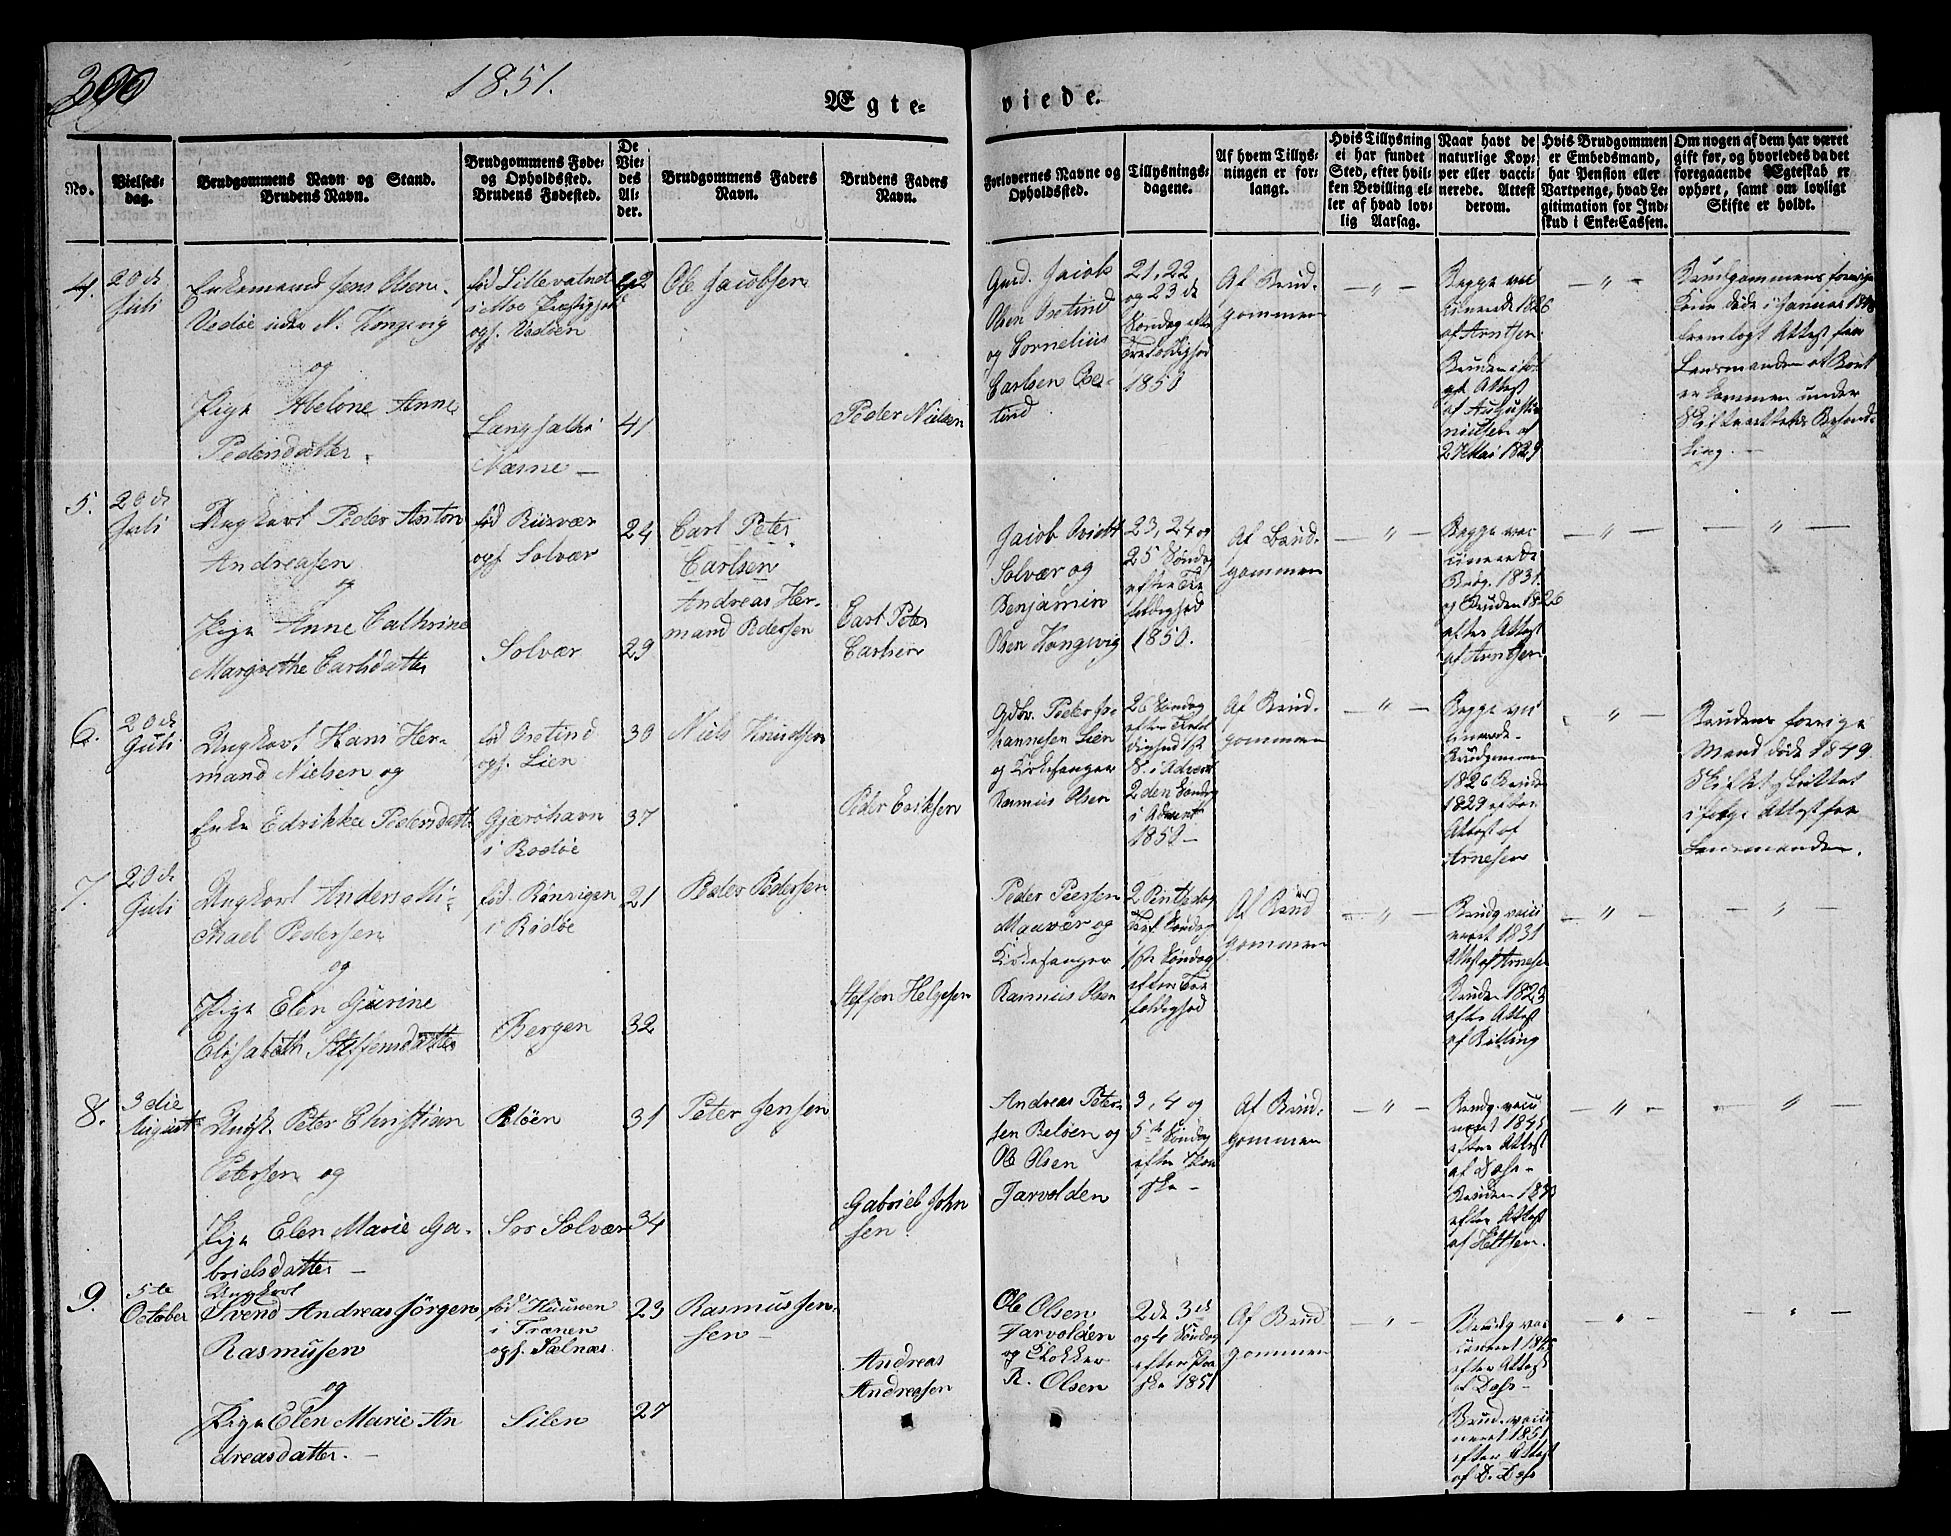 1851.
Ægte-
viede.
No.
Vielses-
dag.
Brudgommens Navn og Stand.
Brudens Navn.
Brudgommens Føde-
og Opholdssted.
Brudens Fødested.
De
Vie-
des
Al-
der.
Brudgommens Faders
Navn.
Brudens Faders
Navn.
Forlovernes Navne og
Opholdssted.
Tillysnings-
dagene.
Af hvem Tillys-
ningen er for-
langt.
Hvis Tillysning
ei har fundet
Sted, efter hvil-
ken Bevilling el-
ler af hvad lov-
lig Aarsag.
Naar havt de
naturlige Kop-
per eller vacci-
nerede. Attest
derom.
Hvis Brudgommen
er Embedsmand,
har Pension eller
Vartpenge, hvad Le-
gitimation for Ind-
skud i Enke-Cassen.
Om nogen af dem har været
gift før, og hvorledes da det
foregaaende Ægteskab er
ophørt, samt om lovligt
Skifte er holdt.
4.
20de
Juli
Enkemand Jens Olsen
Vedøe N. Kongsvig
og
Pige Abelone Anne
Pedersdatter.
fød
i Moe Præstegjeld
ogs. Vedøen
Ole Jacobsen
41
Peder Nielsen
Jacob
Olsen Osetind
og Cornelius
Carlsen Ose-
tind
21, 22
og 23de
Søndag efter
Trefoldighed
1850
Af Brud-
gommen
"
Begge vac
cinerede 1826
af Arntsen
Bruden i føl
ge Attest
af
Mai 1829
"
Brudgommens forrige
Kone døde i Januar
fremlagt Attest fra
Lensmanden at Boet
er kommen under
Skifterettens Behand-
ling.
5.
20de
Juli
Ungkarl Peder Anton
Andreasen
og
Pige Anne Cathrine
Margrethe Carlsdatter
fød Riisvær
ogs. Solvær
Solvær
24
29
Carl Peter
Carlsen
Andreas Her-
mand Pedersen
Carl Peter
Carlsen
Jacob
Solvær og
Benjamin
Olsen Kongsvig
23, 24 og
25 Søndag
efter Tre
foldighed
1850.
Af Brud-
gommen
"
Begge vac
cinerede
Brdg. 1831
og Bruden 1826
efter Attest
af Arntsen
"
"
6.
20de
Juli
Ungkarl Hans Her-
mand Nielsen og
Enke Edrikke Pedersdatt.
fød Osetind
ogs. Lien
Gjærshavn
i Rødøe
30
37
Niels Knudsen
Peder Eriksen
Peder Jo
hannesen Lien
og Kirkesanger
Rasmus Olsen
26 Søndag
efter Trefol
dighed 1ste
S. i Advent
2den Søndag
i Advent
1850
Af Brud-
gommen
"
Begge vac
cinerede
Brudgommen
1826 Bruden
1829 efter
Attest af
Arnesen
"
Brudens forrige
Mand døde 1849
Skiftet sluttet
ifølge Attest fra
Lensmanden.
7.
20de
Juli
Ungkarl Anders Mi-
chael Pedersen
og
Pige Elen Gurine
Elisabeth Steffensdatter
fød. Rønvigen
i Rødøe
Bergen
21
32
Peder Pedersen
Steffen Helgesen
Peder Peersen
og
Kirkesanger
Rasmus Olsen
Søndag
1ste Søndag
efter Tre
foldighed
Af Brud
gommen
"
Brudg. vacci
neret 1831
Attest af Arnesen
Bruden 1823
efter Attest
af
"
"
8.
3die
August
Ungk. Peter Christian
Petersen og
Pige Elen Marie Ga-
brielsdatter
Sør Solvær
31
34
Peter Jensen
Gabriel John
sen
Andreas Peter-
sen Beløen og
Ole Olsen
Farvolden
3, 4 og
5te Søndag
efter Paa
ske
Af Brud-
gommen
"
Brudg. vacci
neret 1845
efter Attest
af Dass
Bruden
efter Attest
af
"
"
9.
5te
October
Ungkarl
Svend Andreas Jørgen
Rasmusen
og
Pige Elen Marie An
dreasdatter.
fød Huusøen
i Trænen
ogs. Sælnæs
Silen
23
27
Rasmus Jen-
sen
Andreas
Andreasen
Ole Olsen
Farvolden
og Klokker
R. Olsen
2de 3de
og 4 Søndag
efter Paa
ske 1851
Af Brud
gommen
"
Brudg vac
cineret
efter Attest
af Dass
Brud. vacci
neret 1851
efter Attest
af D. Dass
"
"